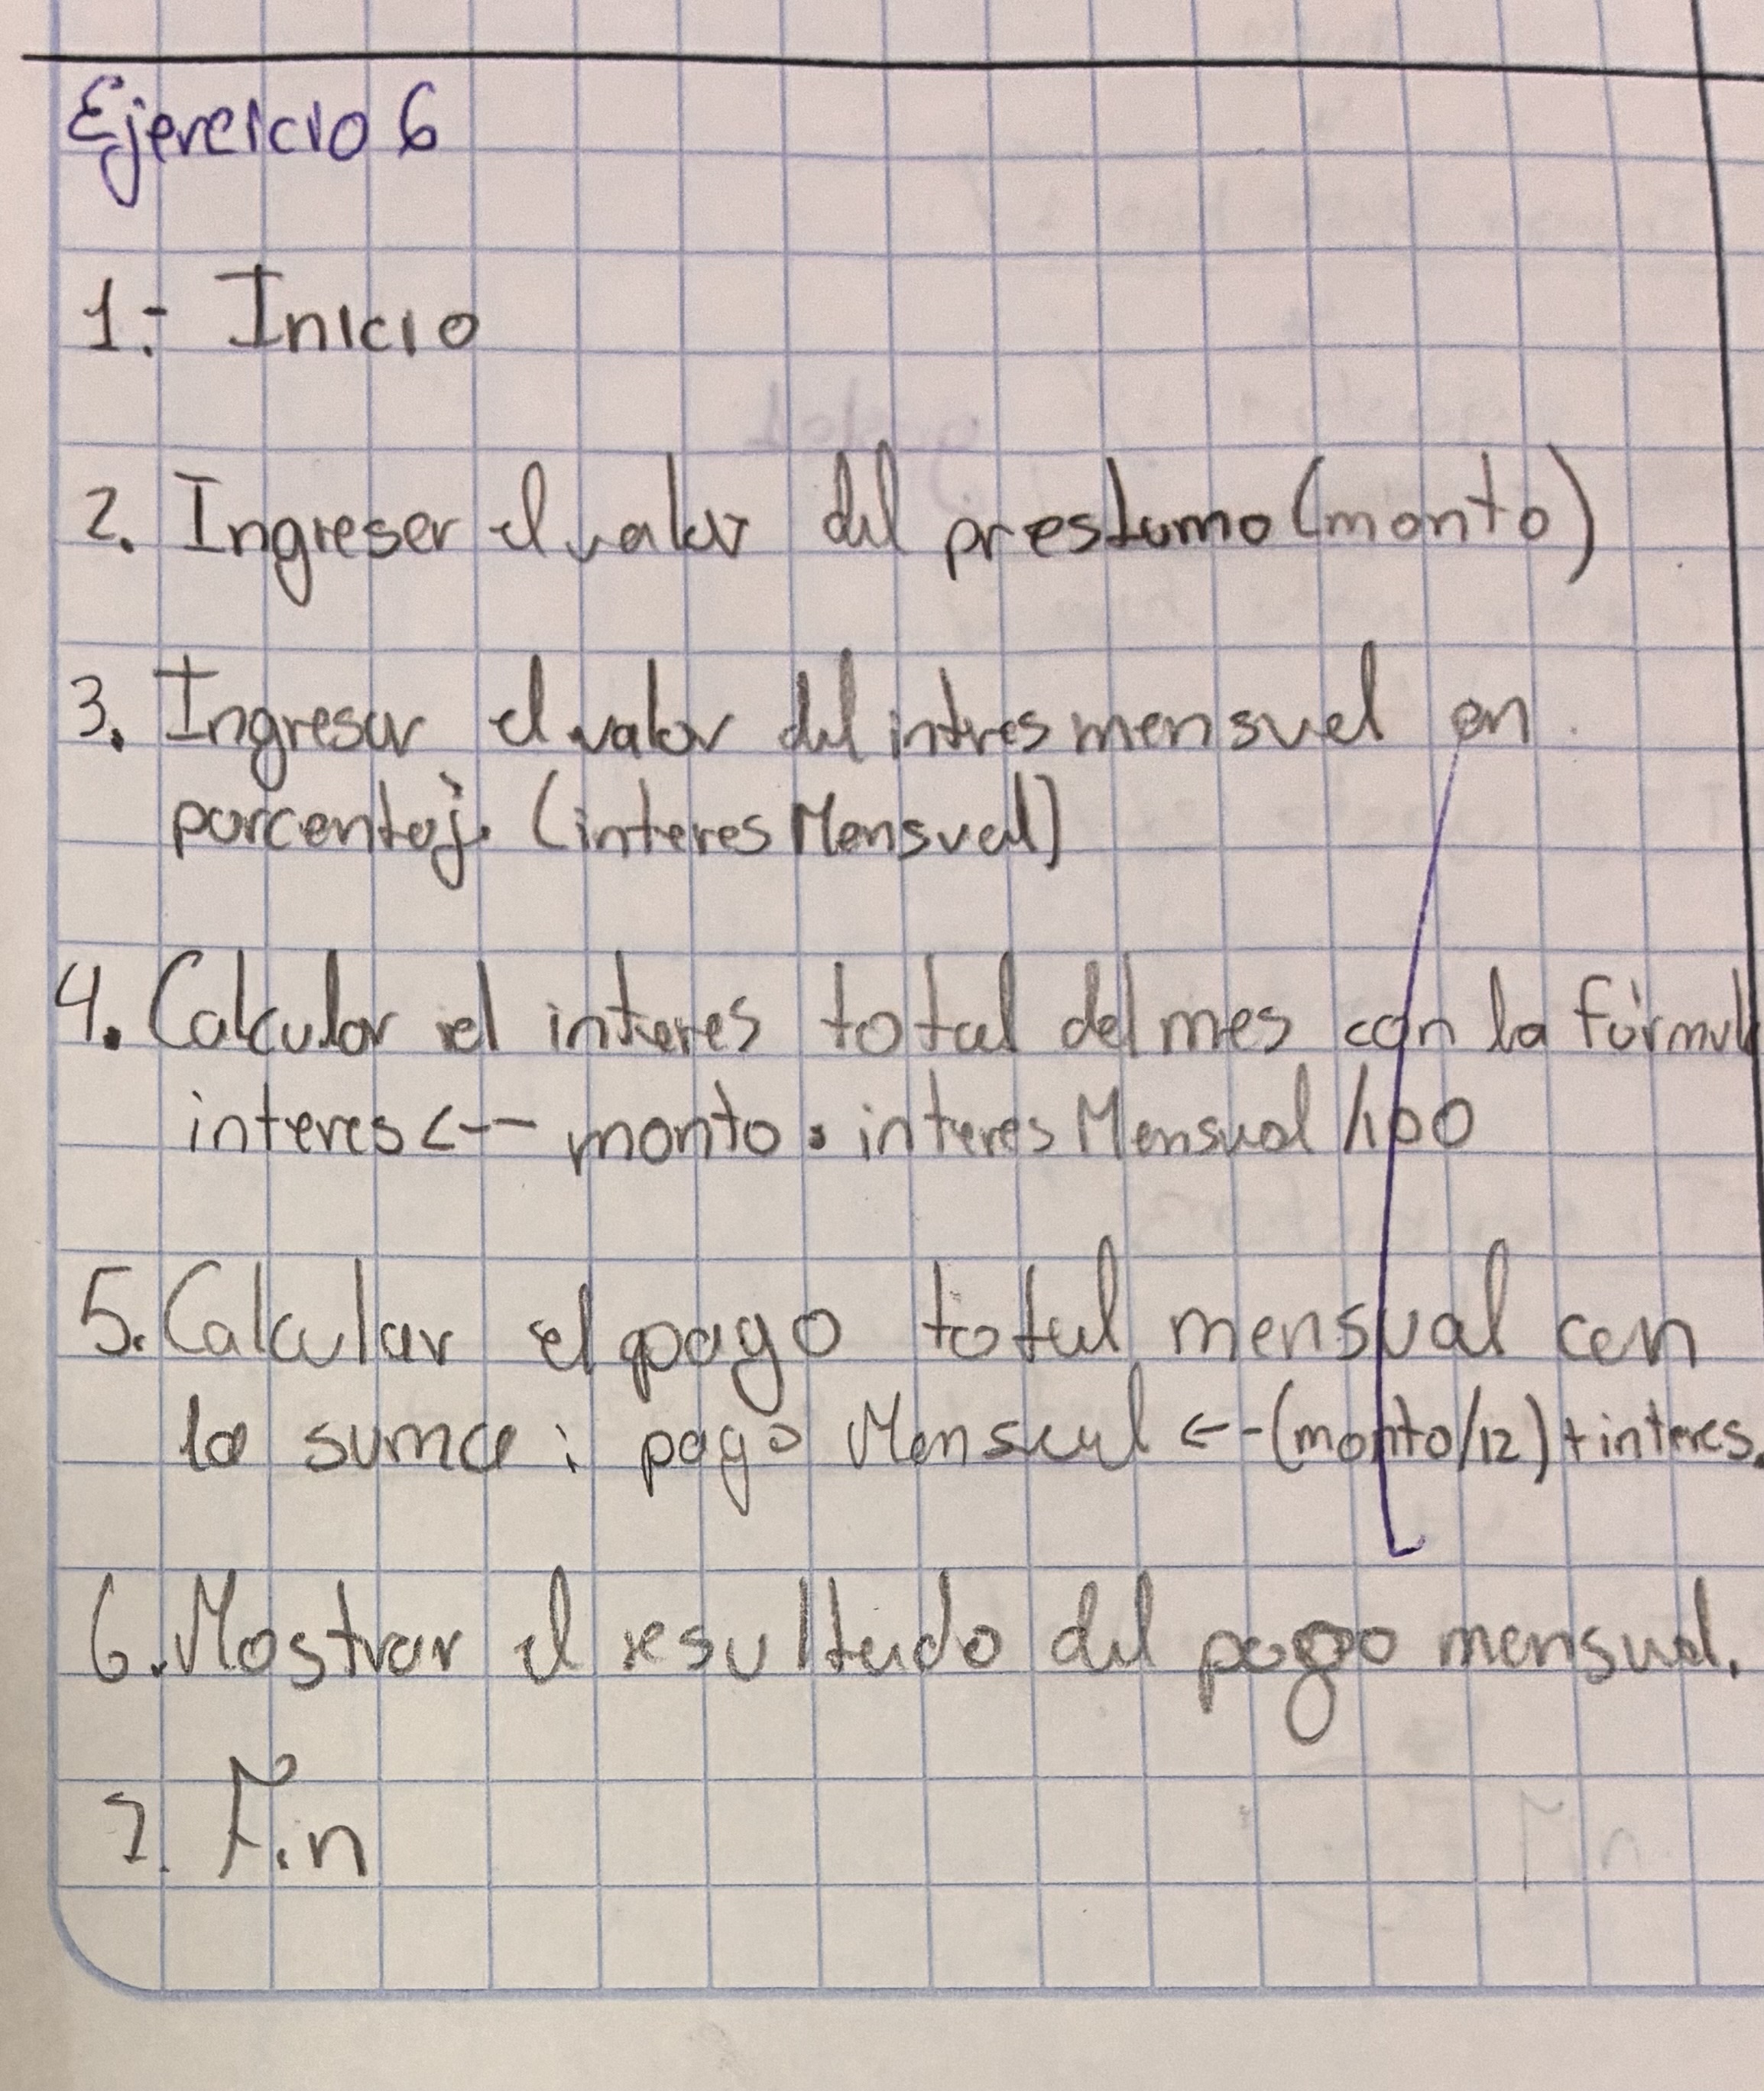 Ejercicio 6
1.- Inicio
2. Ingreser el valor del prestamo (monto)
3. Ingresar el valor del interes mensual en
porcentaje (interes Mensual)
4. Calcular el interes total del mes con la fórmul
interes <-- monto . interes Mensual /100
5. Calcular el pago total mensual con
la suma : pago Mensual <-- (monto/12) + interes.
6. Mostrar el resultado del pago mensual.
7. Fin